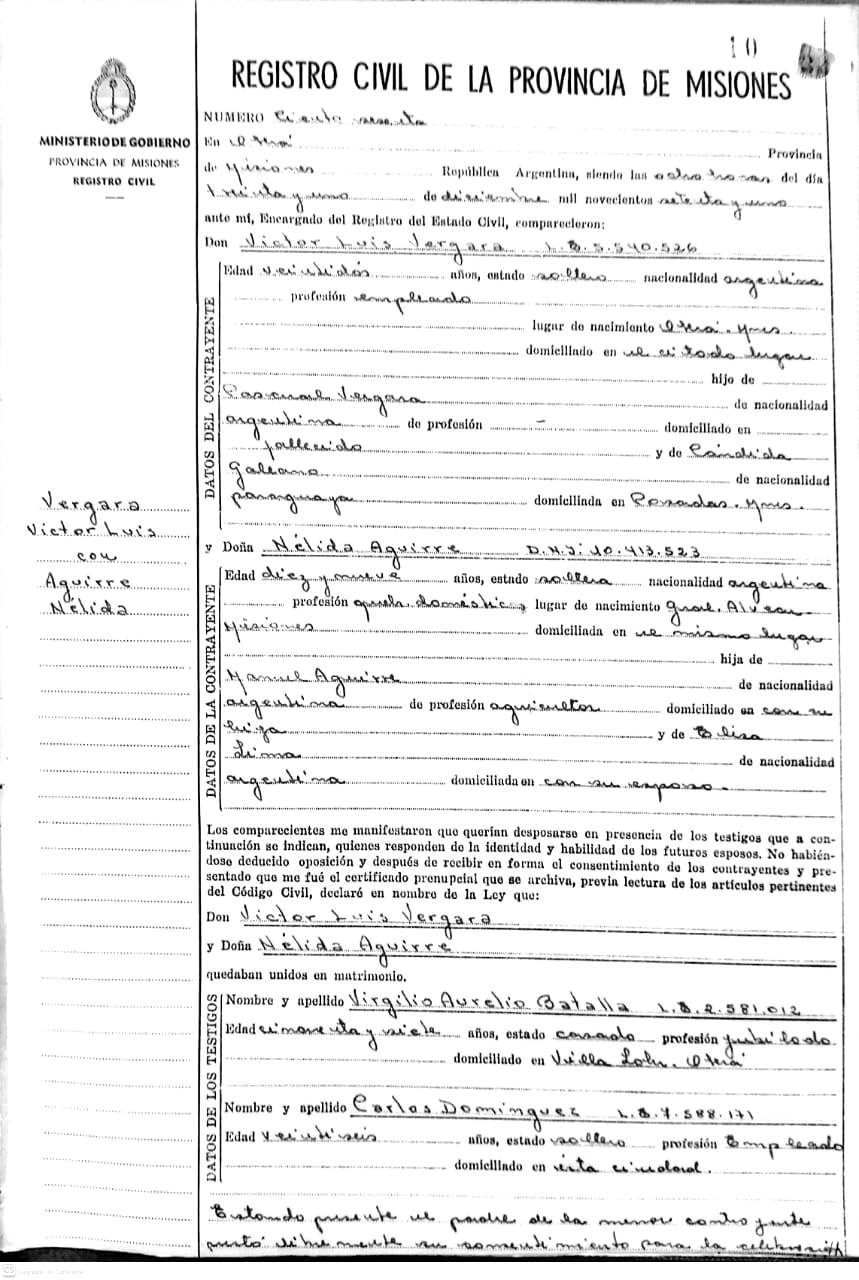 10
REGISTRO CIVIL DE LA PROVINCIA DE MISIONES
MINISTERIO DE GOBIERNO
PROVINCIA DE MISIONES
REGISTRO CIVIL
NUMERO Ciento sesenta
En Oberá Provincia
de Misiones República Argentina, siendo las ocho horas del día
treinta y uno de diciembre mil novecientos setenta y uno
ante mí, Encargado del Registro del Estado Civil, comparecieron:
Don Victor Luis Vergara L.E. 5.540.526
DATOS DEL CONTRAYENTE
Edad veintidós años, estado soltero nacionalidad argentina
profesión empleado
lugar de nacimiento Oberá. Mnes.
domiciliado en el citado lugar
hijo de
Pascual Vergara de nacionalidad
argentina de profesión - domiciliado en
fallecido y de Cándida
Galeano de nacionalidad
paraguaya domiciliada en Posadas. Mnes.
Vergara
Victor Luis
con
Aguirre
Nélida
y Doña Nélida Aguirre D.N.I. 10.413.523
DATOS DE LA CONTRAYENTE
Edad diez y nueve años, estado soltera nacionalidad argentina
profesión queh. doméstic. lugar de nacimiento Gral. Alvear
Misiones domiciliada en el mismo lugar
hija de
Manuel Aguirre de nacionalidad
argentina de profesión agricultor domiciliado en con su
hija y de Elisa
Lima de nacionalidad
argentina domiciliada en con su esposo.
Los comparecientes me manifestaron que querían desposarse en presencia de los testigos que a con-
tinuación se indican, quienes responden de la identidad y habilidad de los futuros esposos. No habién-
dose deducido oposición y después de recibir en forma el consentimiento de los contrayentes y pre-
sentado que me fué el certificado prenupcial que se archiva, previa lectura de los artículos pertinentes
del Código Civil, declaró en nombre de la Ley que:
Don Victor Luis Vergara
y Doña Nélida Aguirre
quedaban unidos en matrimonio.
DATOS DE LOS TESTIGOS
Nombre y apellido Virgilio Aurelio Batalla L.E. 2.581.012
Edad cincuenta y siete años, estado casado profesión jubilado
domiciliado en Villa Oberá
Nombre y apellido Carlos Dominguez L.E. 7.588.171
Edad veintiseis años, estado soltero profesión Empleado
domiciliado en ésta ciudad.
Estando presente el padre de la menor contrayente
prestó libremente su consentimiento para la